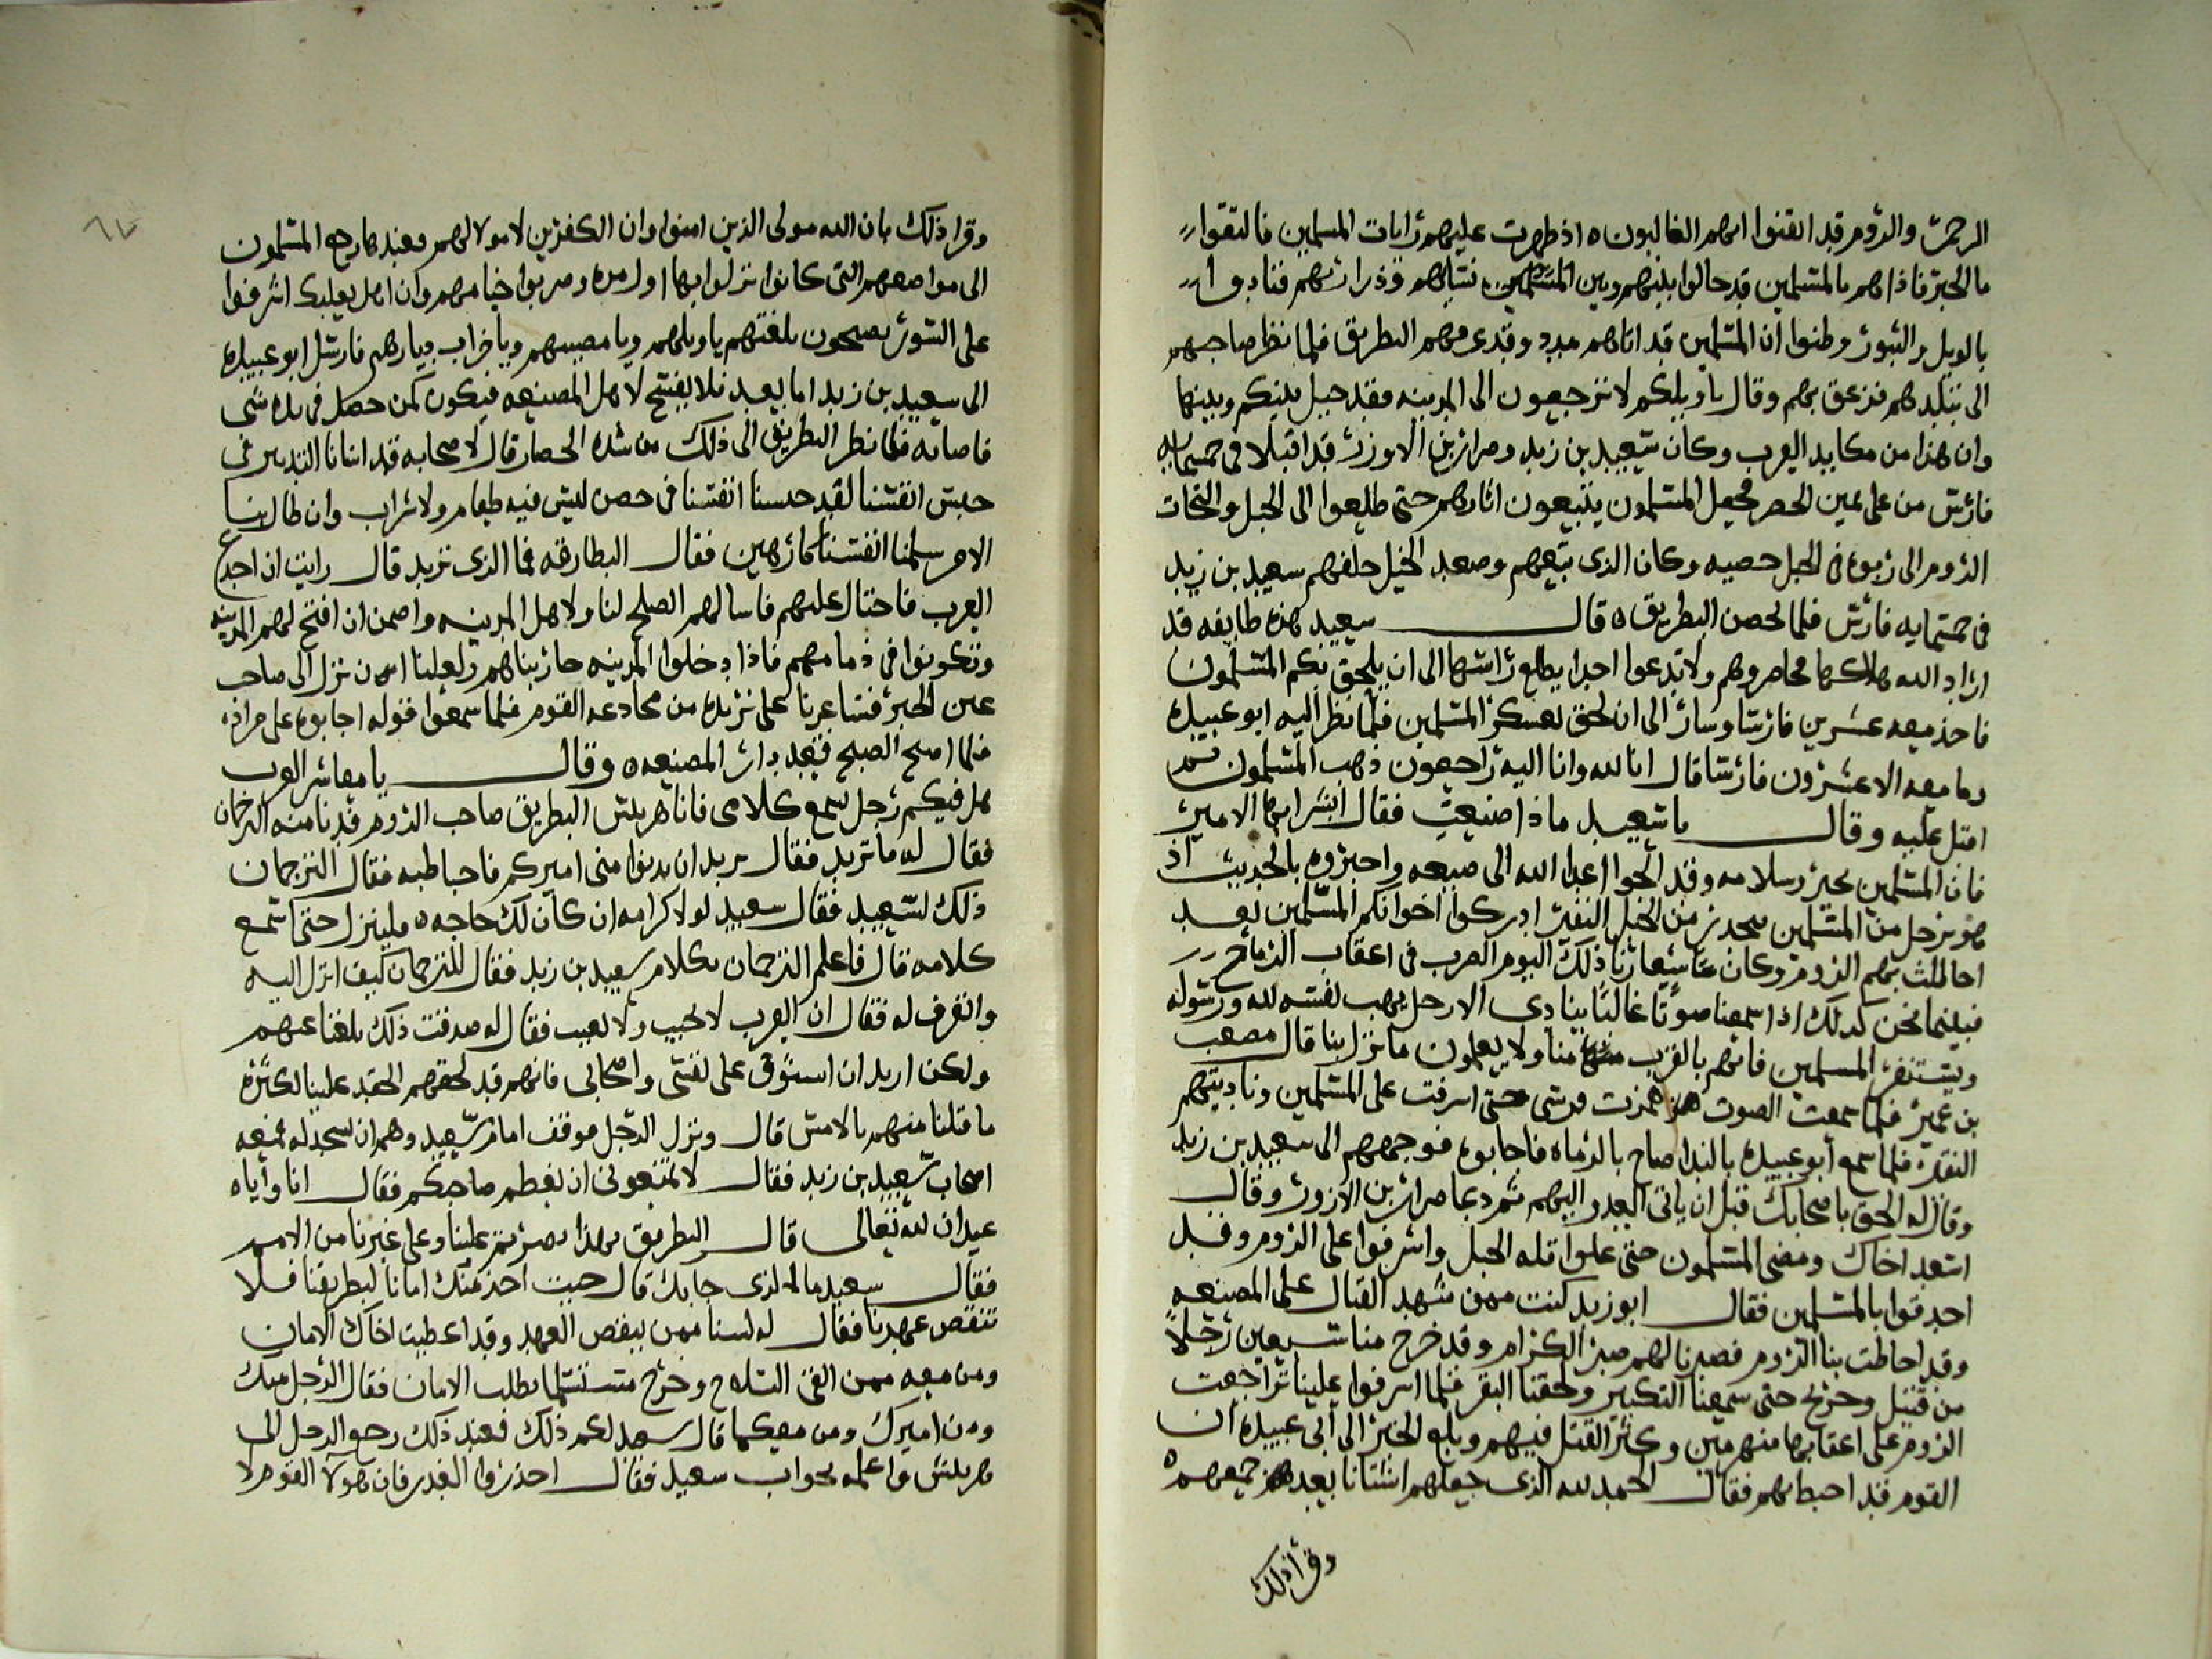 الرحمن والروم قد ايقنوا انهم الغالبون ه اذ ظهرت عليهم رايات المسلمين فالتقوا
مالخبر فاذا هم بالمسلمين قد حالوا بينهم وبين المسلمين نسايهم وذراريهم فنادوا
بالويل والثبور وظنوا ان المسلمين قد اتاهم مدد وقد عرفهم البطريق فلما نظر صاحبهم
الى تبلدهم فزعق بهم وقال ياويلكم لا ترجعون الى المدينه فقد حيل بينكم وبينها
وان هذا من مكايد العرب وكان سعيد بن زيد وضرار بن الازور قد اقبلا في خمسمايه
فارس من على يمين الحصر فجعل المسلمون يتبعون اثارهم حتى طلعوا الى الجبل والتجات
الروم الى ربوه في الجبل حصينه وكان الذي تبعهم وصعد الجبل خلفهم سعيد بن زيد
في خمسمايه فارس فلما تحصن البطريق ه قال سعيد هذه طايفه قد
اراد الله هلاكها فحاصروهم ولا تدعوا احدا يطلع راسها الى ان يلحق بكم المسلمون
فاخذ معه عشرين فارسا وسار الى ان لحق بعسكر المسلمين فلما نظر اليه ابو عبيده
وما معه الا عشرون فارسا قال انا لله وانا اليه راجعون ذهب المسلمون ثم
اقبل عليه وقال ياسعيد ماذا صنعت فقال ابشر ايها الامير
فان المسلمين بخير وسلامه وقد الجوا اعدا الله الى ضيعه واخبروه بالحديث اذ
هو برجل من المسلمين ينحدر من الجبل النفير ادركوا اخوانكم المسلمين لقد
احاطت بهم الروم وكان شعارنا ذلك اليوم العرب في اعقاب الرماح
فبينما نحن كذلك اذا سمعنا صوتا غالبا ينادي الا رجل يهب نفسه لله ورسوله
ويستنفر المسلمين فانهم بالقرب منا ولا يعلمون ما نزل بنا قال مصعب
بن عمير فلما سمعت الصوت همزت فرسي حتى اشرفت على المسلمين وناديتهم
النفير فلما سمع ابو عبيده بالندا صاح بالرماه فاجابوه فوجههم الى سعيد بن زيد
وقال له الحق باصحابك قبل ان ياتي العدو اليهم ثم دعا ضرار بن الازور وقال
اسعد اخاك ومضى المسلمون حتى علوا قله الجبل واشرفوا على الروم وقد
احدقوا بالمسلمين فقال ابو زيد كنت ممن شهد القتال على المصنعه
وقد احاطت بنا الروم فصبرنا لهم صبر الكرام وقد خرج منا سبعين رجلا
من قتيل وجريح حتى سمعنا التكبير ولحقنا النفر فلما اشرفوا علينا تراجعت
الروم على اعقابها منهزمين وكثر القتل فيهم وبلغ الخبر الى ابي عبيده ان
القوم قد احيط بهم فقال الحمد لله الذي جعلهم اشتاتا بعد جمعهم ه
وقرا ذلك
وقرا ذلك بان الله مولى الذين امنوا وان الكفرين لا مولا لهم وعندها رجع المسلمون
الى مواضعهم التي كانوا نزلوا بها اول مره وضربوا خيامهم وان اهل بعلبك اشرفوا
على السور يصيحون بلغتهم ياويلهم ويا مصيبهم ويا خراب ديارهم فارسل ابو عبيده
الى سعيد بن زيد اما بعد فلا يفتح لاهل المصنعه فيكون كمن حصل في يده شي
فاضاعه فلما نظر البطريق الى ذلك من شده الحصار قال لاصحابه قد اتانا التدمير في
حبس انفسنا لقد حبسنا انفسنا في حصن ليس فيه طعام ولا شراب وان طال بنا
الامر سلمنا انفسنا كارهين فقال البطارقه فما الذي تريد قال رايت ان اخدع
العرب فاحتال عليهم فاسالهم الصلح لنا ولاهل المدينه واضمن ان افتح لهم المدينه
وتكونوا في ذمامهم فاذا دخلوا المدينه حاربناهم ولعلنا ان نزل الى صاحب
عين الحبر فيساعدنا على نريده من مخادعه القوم فلما سمعوا قوله اجابوه على مراده
فلما اصبح الصبح قعد بدار المصنعه ه وقال يا معاشر العرب
هل فيكم رجل يسمع كلامي فانا هربلس البطريق صاحب الروم فدنا منه الترجمان
فقال له ما تريد فقال يريد ان يدنوا مني اميركم فاخاطبه فقال الترجمان
ذلك لسعيد فقال سعيد لو لا كرامه ان كان لك حاجه ه فلينزل حتى اسمع
كلامه قال فاعلم الترجمان بكلام سعيد بن زيد فقال للترجمان كيف انزل اليه
وانصرف له فقال ان العرب لا تخيب ولا تعيب فقال له صدقت ذلك بلغنا عنهم
ولكن اريد ان استوثق على نفسي واصحابي فانهم قد لحقهم الحقد علينا لكثره
ما قتلنا منهم بالامس قال ونزل الرجل فوقف امام سعيد وهم ان يسجد له فمنعه
اصحاب سعيد بن زيد فقال لا تمنعوني ان يعظم صاحبكم فقال انا واياه
عبدان لله تعالى قال البطريق بهذا نصرتم علينا وعلى غيرنا من الامم
فقال سعيد ما الذي جابك قال جيت اخذ منك امانا لبطريقنا فلا
تنقض عهدنا فقال له لسنا ممن ينقض العهد وقد اعطيت اخاك الامان
ومن معه ممن القى السلاح وخرج مستسلما يطلب الامان فقال الرجل منك
ومن اميرك ومن معكما قال سعيد نعم ذلك فعند ذلك رجع الرجل الى
هربلس واعلمه بجواب سعيد فقال احذروا الغدر فان هولا القوم لا